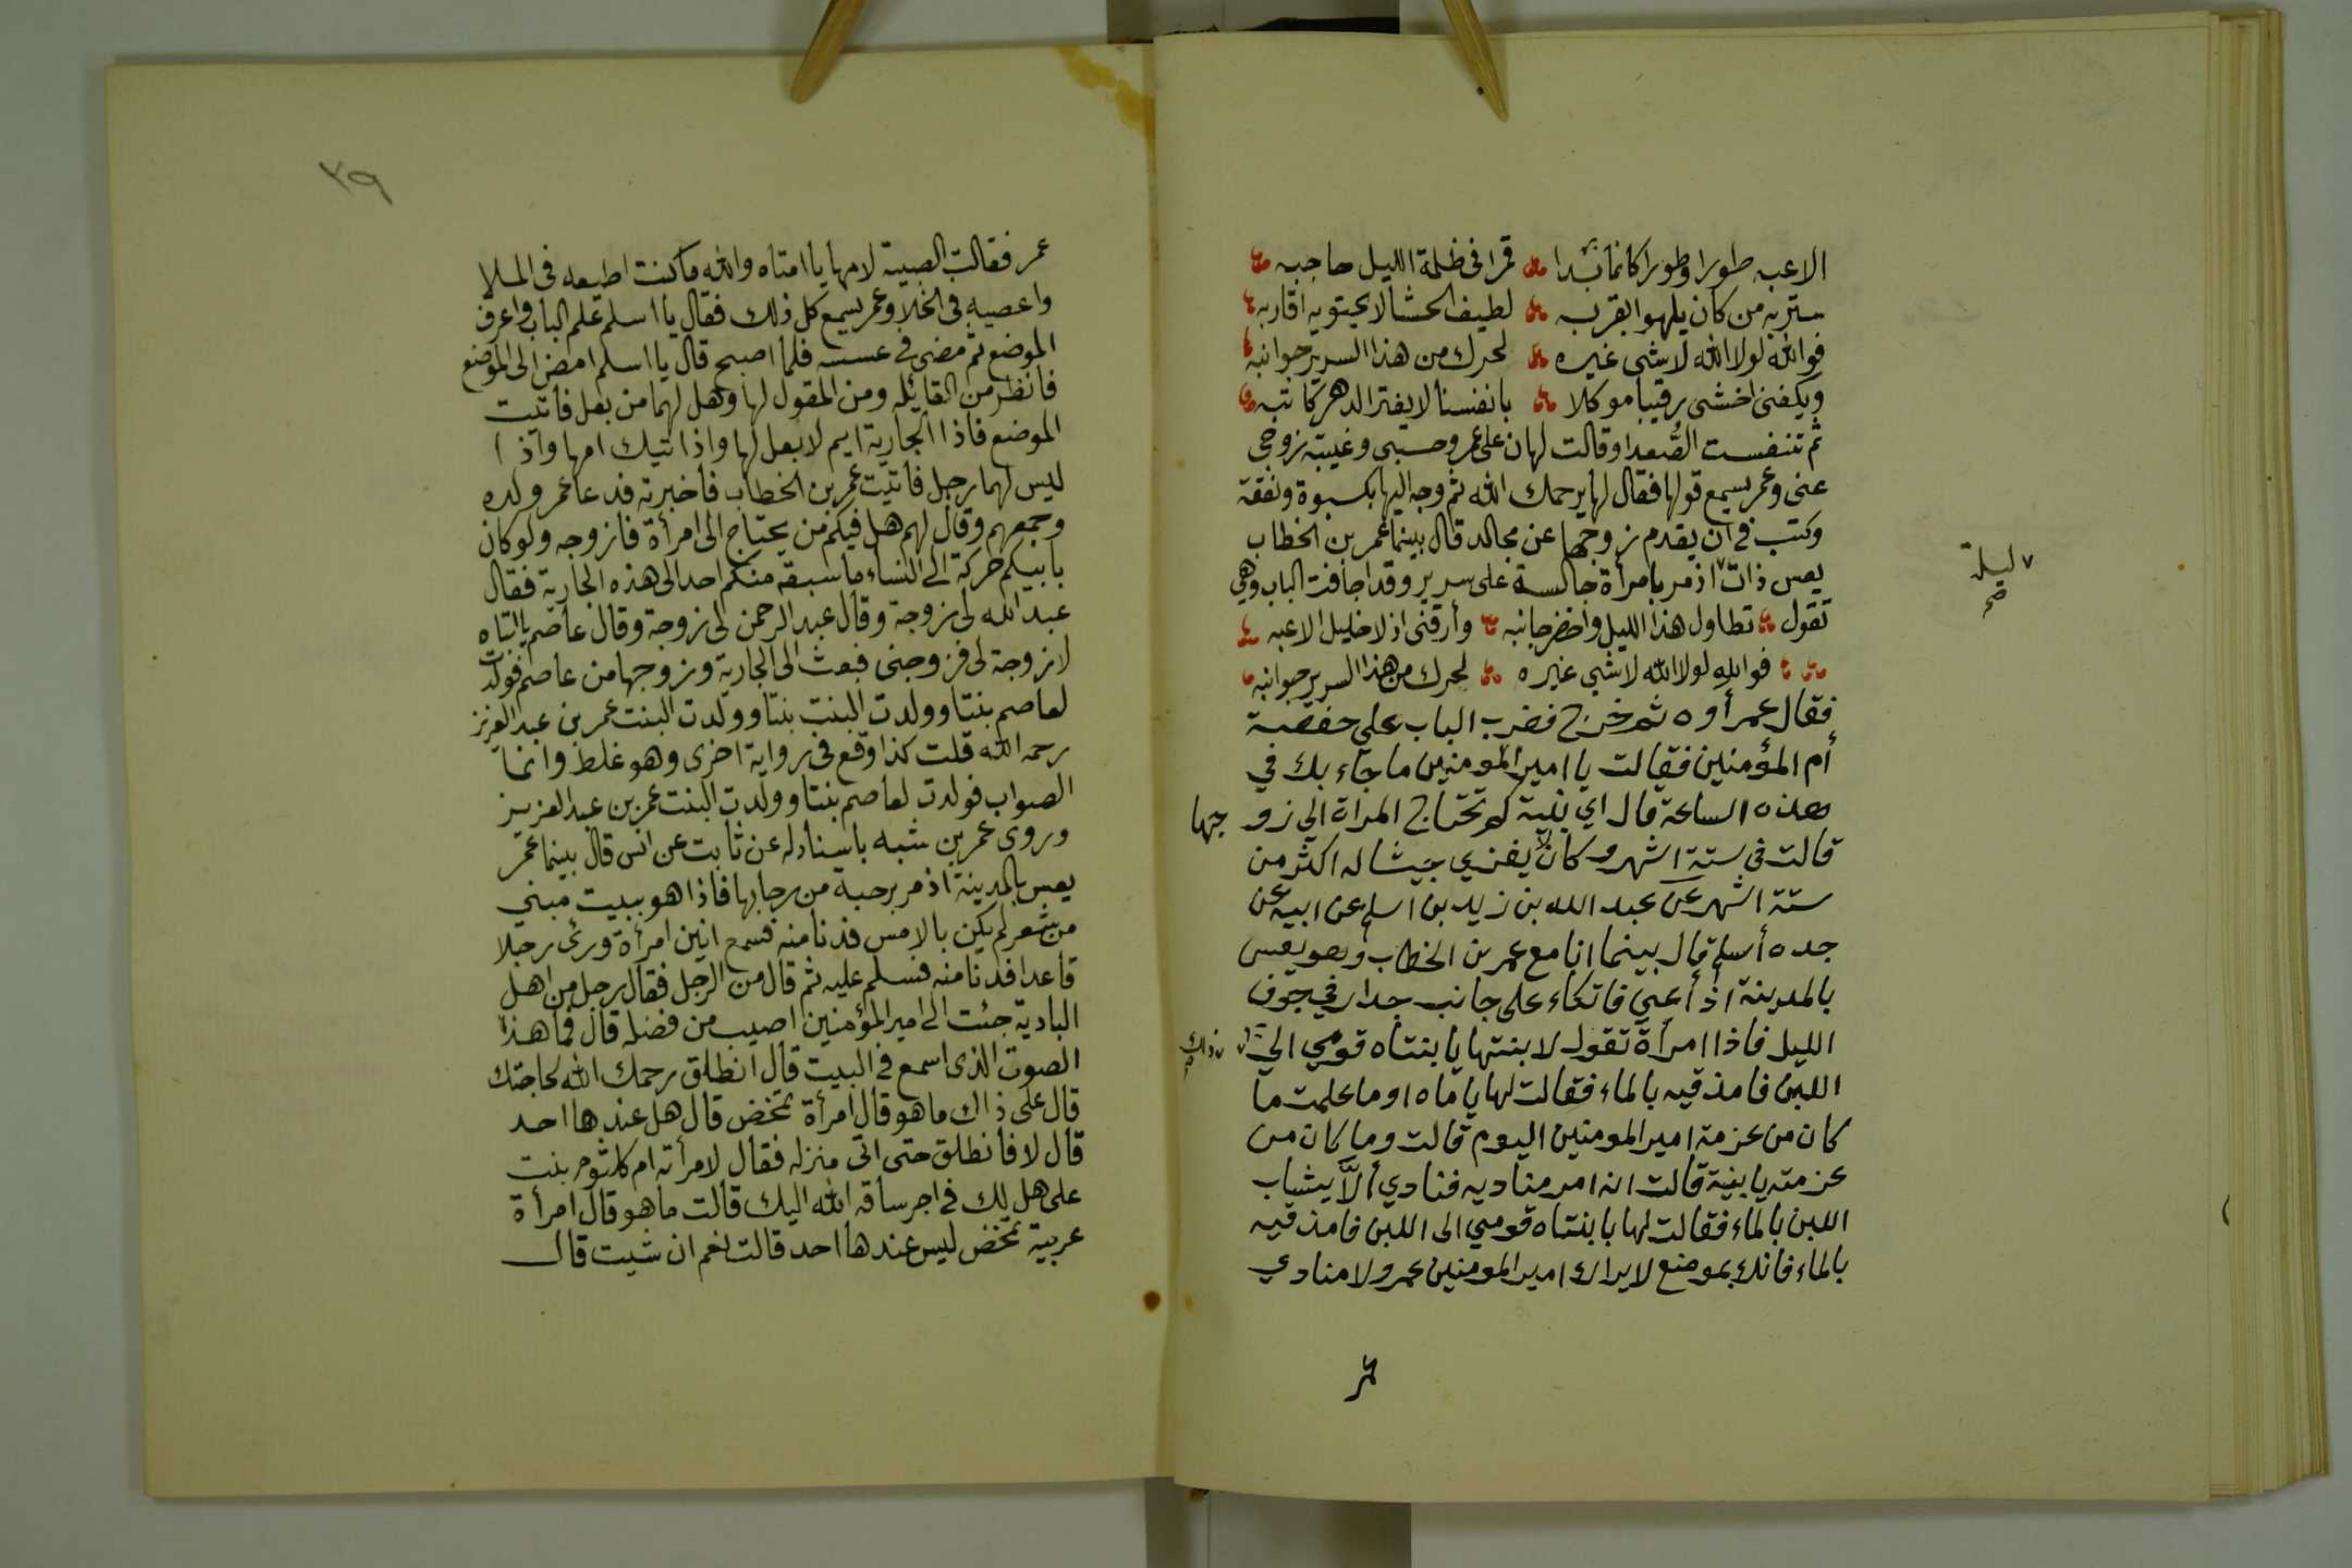 الاعبه طورا وطورا كانما بدا قمرا فى ظلمة الليل حاجبه
يسر به من كان يلهو بقربه لطيف الحشا لا يحتويه اقاربه
فوالله لولا الله لا شى غيره لحرك من هذا السرير جوانبه
ويكفنى اخشى رقيبا موكلا بانفسنا لا يفتر الدهر كاتبه
ثم تنفست الصُّعدا وقالت لهان على عمر وحسبى وغيبة زوجى
عنى وعمر يسمع قولها فقال لها يرحمك الله ثم وجه اليها بكسوة ونفقة
وكتب فى ان يقدم زوجها عن مجالد قال بينما عمر بن الخطاب
يعس ذات اذ مر بامرأة جالسة على سرير وقد اجافت الباب وهى
ليلة صح
تقول تطاول هذا الليل واخضر جانبه وأرقنى اذ لا خليل الاعبه
فوالله لولا الله لا شي غيره لحرك من هذا السرير جوانبه
فقال عمر أوه ثم خرج فضرب الباب على حفصة
أم المؤمنين فقالت يا امير المومنين ما جاء بك في
هذه الساعة قال اي بنية كم تحتاج المراة الى زوجها
قالت فى ستة اشهر وكان لا يغزي جيشا له اكثر من
ستة اشهر عن عبد الله بن زيد بن اسلم عن ابيه عن
جده أسلم قال بينما انا مع عمر بن الخطاب وهو يعس
بالمدينة اذ أعيى فاتكاء على جانب جدار في جوف
الليل فاذا امرأة تقول لابنتها يا بنتاه قومي الى ذلك
اللبن فامذقيه بالماء فقالت لها ياماه اوما علمت ما
كان من عزمة امير المومنين اليوم قالت وما كان من
عزمته يا بنية قالت انه امر مناديه فنادي ألاَّ يشاب
اللبن بالماء فقالت لها يا بنتاه قومي الى اللبن فامذقيه
بالماء فانك بموضع لا يراك امير المومنين عمر ولا منادي
عمر
٣٩
عمر فقالت الصبية لامها يا امتاه والله ما كنت اطيعه فى الملا
واعصيه فى الخلا وعمر يسمع كل ذلك فقال يا اسلم علم الباب واعرف
الموضع ثم مضى فى عسسه فلما اصبح قال يا اسلم امض الى الموضع
فانظر من القائله ومن المقول لها وهل لهما من بعل فاتيت
الموضع فاذا الجارية ايم لا بعل لها واذا تيك امها واذا
ليس لهما رجل فاتيت عمر بن الخطاب فاخبرته فدعا عمر ولده
وجمعهم وقال لهم هل فيكم من يحتاج الى امرأة فازوجه ولو كان
بابيكم حركة الى النساء ما سبقه منكم احد الى هذه الجارية فقال
عبد الله لى زوجة وقال عبد الرحمن لى زوجة وقال عاصم يا ابتاه
لا زوجة لى فزوجنى فبعث الى الجارية وزوجها من عاصم فولدت
لعاصم بنتا وولدت البنت بنتا وولدت البنت عمر بن عبد العزيز
رحمه الله قلت كذا وقع فى رواية اخرى وهو غلط وانما
الصواب فولدت لعاصم بنتا وولدت البنت عمر بن عبد العزيز
وروى عمر بن شبه باسناد له عن ثابت عن انس قال بينما عمر
يعس بالمدينة اذ مر برحبة من رحابها فاذا هو ببيت مبني
من شعر لم يكن بالامس فدنا منه فسمع انين امرأة ورئى رجلا
قاعدا فدنا منه فسلم عليه ثم قال من الرجل فقال رجل من اهل
البادية جئت الى امير المؤمنين اصيب من فضله قال فما هذا
الصوت الذى اسمع فى البيت قال انطلق رحمك الله لحاجتك
قال على ذاك ما هو قال امرأة تمخض قال هل عندها احد
قال لا فانطلق حتى اتى منزله فقال لامرأته ام كلثوم بنت
على هل لك فى اجر ساقه الله اليك قالت ما هو قال امرأة
عربية تمخض ليس عندها احد قالت نعم ان شيت قال